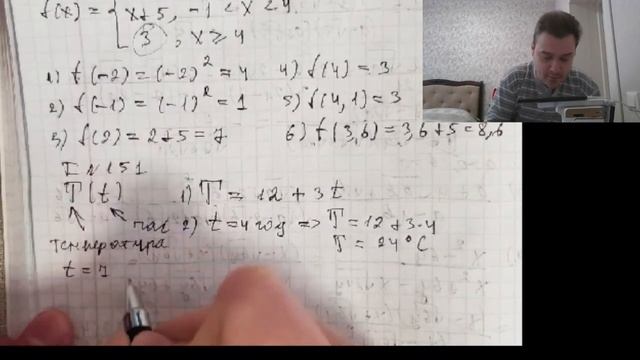 f(x) = { x+5, -1 < x < 4
3, x ≥ 4
1) f(-2) = (-2)² = 4 4) f(4) = 3
2) f(-1) = (-1)² = 1 5) f(4,1) = 3
3) f(2) = 2+5 = 7 6) f(3,6) = 3,6+5 = 8,6
N 151
T(t) 1) T = 12 + 3t
час 2) t = 4 год => T = 12+3·4
температура T = 24°C
t = 7